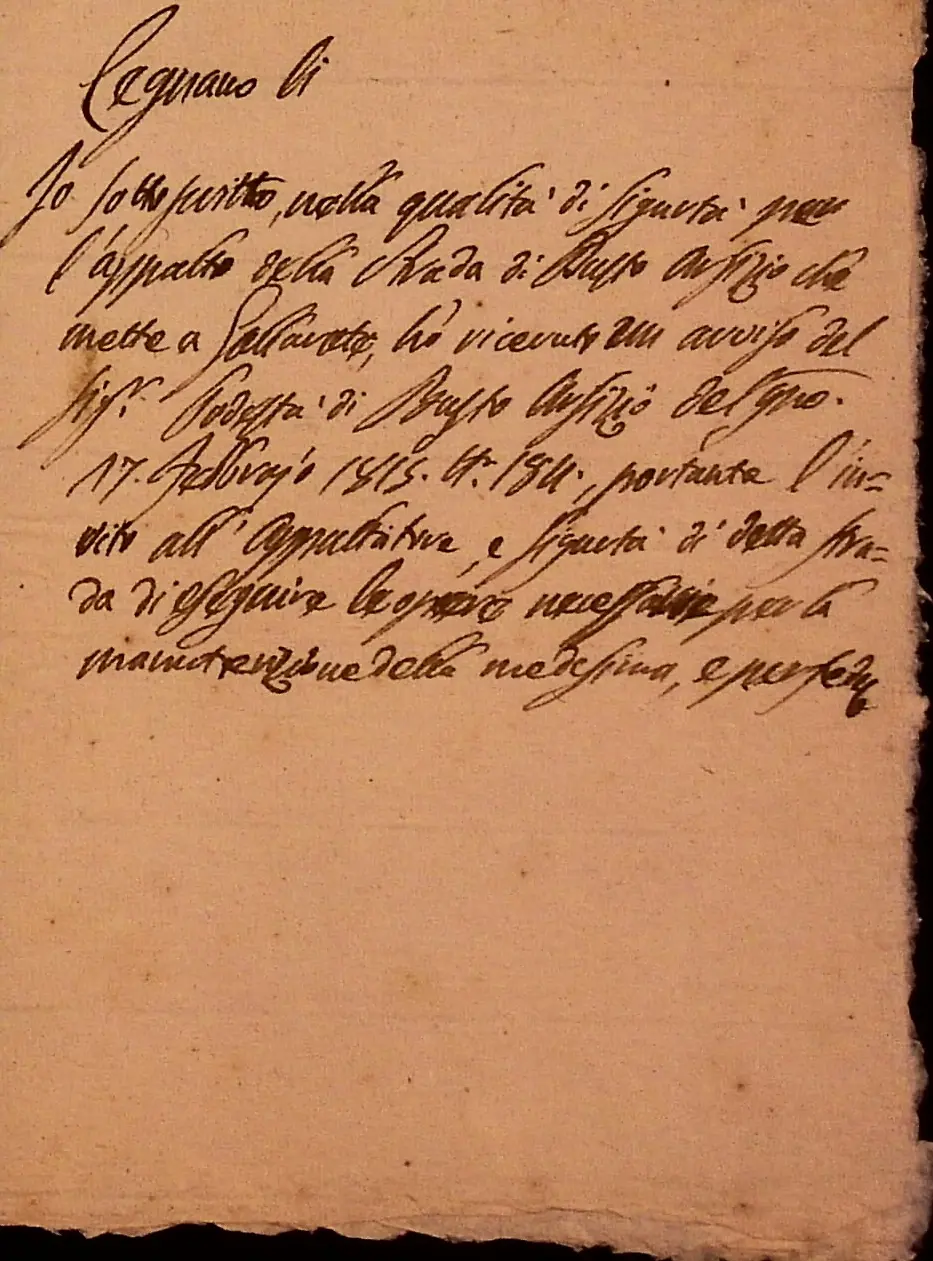 Legnano li
Io sottoscritto, nella qualità di sigurtà per
l'appalto della Strada di Busto Arsizio che
mette a Gallarate, hò ricevuto un avviso del
Sig.r Podestà di Busto Arsizio del gno.
17. Febbrajo 1815. N.r 184., portante l'in=
vito all'Appaltatore, e sigurtà di detta stra=
da di eseguire le opere necessarie per la
manutenzione della medesima, e per fede